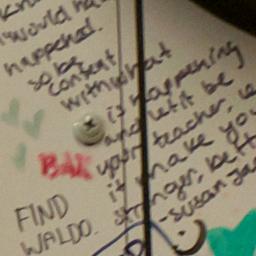 would ha
happened.
so be
content
with what
is happening
and let it be
your teacher, le
it make you
stronger, bett
-Susan Ja
BAE
FIND
WALDO.